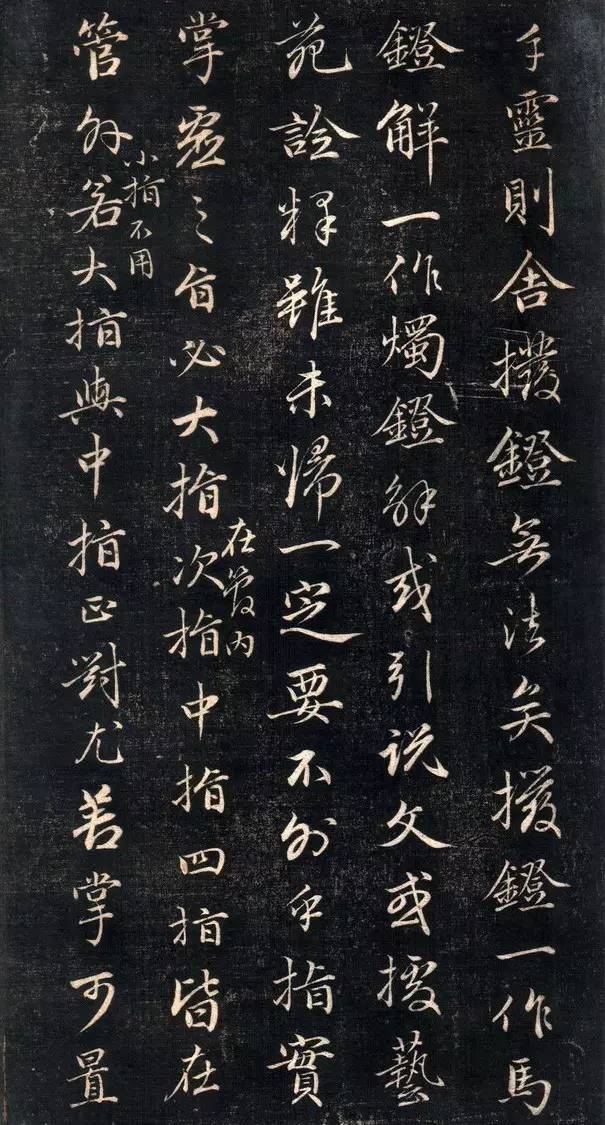 乎靈則舍撥鐙無法矣撥鐙一作馬
鐙解一作燭鐙解或引說文或援藝
苑詮釋雖未歸一定要不外乎指實
掌虛之旨必大指次指中指四指皆在
在管內
管外若大指與中指正對尤善掌可置
小指不用